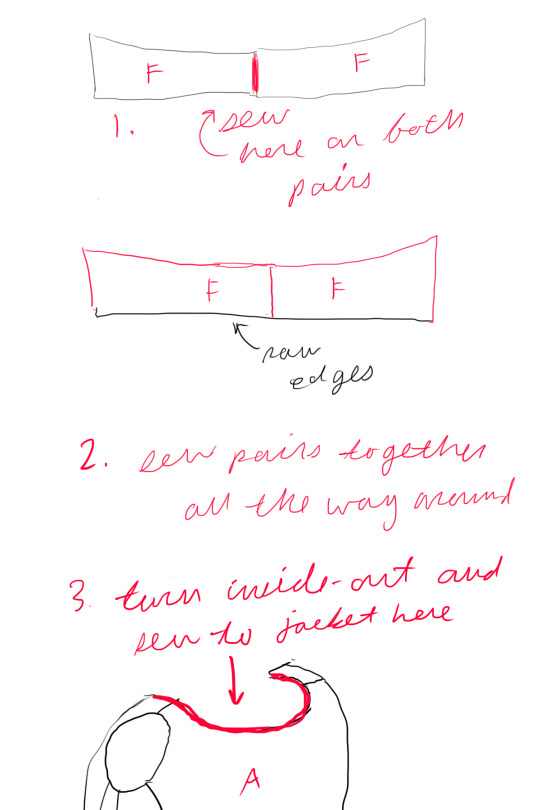 F F
1. sew
here on both
pairs
F F
raw
edges
2. sew pairs together
all the way around
3. turn inside-out and
sew to jacket here
A